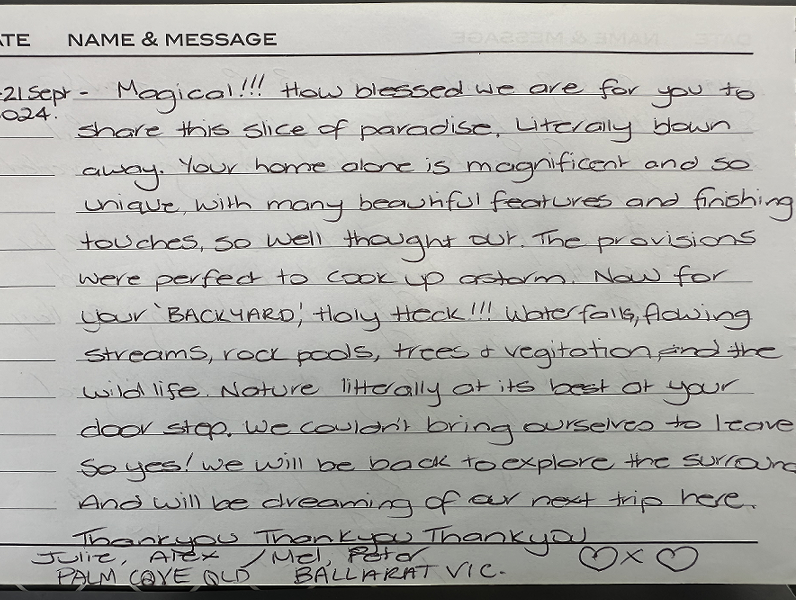 ATE NAME & MESSAGE
-21 Sept - Magical!!! How blessed we are for you to
024. share this slice of paradise. Literally blown
away. Your home alone is magnificent and so
unique, with many beautiful features and finishing
touches, so well thought out. The provisions
were perfect to cook up a storm. Now for
your 'BACKYARD', Holy Heck!!! Waterfalls, flowing
streams, rock pools, trees + vegitation, and the
wild life. Nature litterally at its best at your
door step. We couldn't bring ourselves to leave
So yes! we will be back to explore the surround
And will be dreaming of our next trip here.
Thankyou Thankyou Thankyou
Julie, Alex / Mel, Peter ♡ x ♡
PALM COVE QLD BALLARAT VIC.